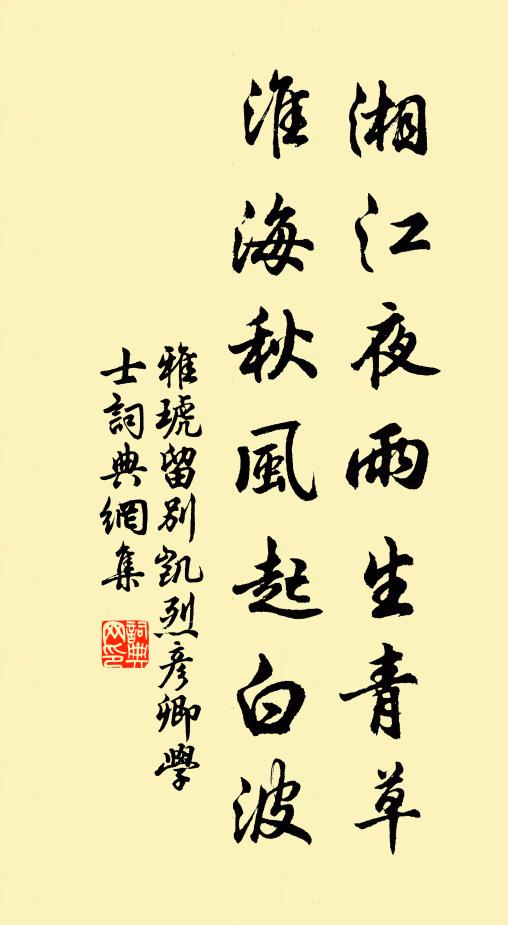 湘江夜雨生青草
淮海秋風起白波
雅琥留別凱烈彥卿學
士詞典網集
詞典
网印